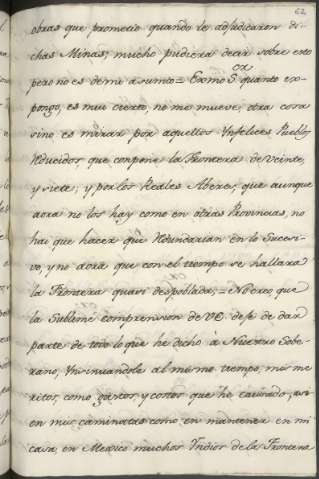 62
obras que prometio quando le adjudicaron di-
chas Minas; mucho pudiera decir sobre esto
pero no es de mi asumto = Exmo Sor quanto ex-
pongo, es mui cierto, no me mueve, otra cosa
sino es mirar por aquellos Ynfelices Pueblos
Reducidos, que conpone la Frontera de Veinte,
y siete; y por los Reales Aberes, que aunque
aora no los hay como en otras Provincias, no
hai que hacer que Redundarian en lo Sucesi-
vo, y no aora que con el tiempo se hallara
la Frontera quasi despoblada; =
la Sublime comprension de VE. deje de dar
parte de todo lo que he dicho à Nuestro Sobe-
rano, Ynsinuandole al mismo tiempo, mis me-
ritos, como gastos, y costos que he causado, asi
en mis caminatas como en mantener en mi
casa, en Mexico muchos Yndios de la Frontera